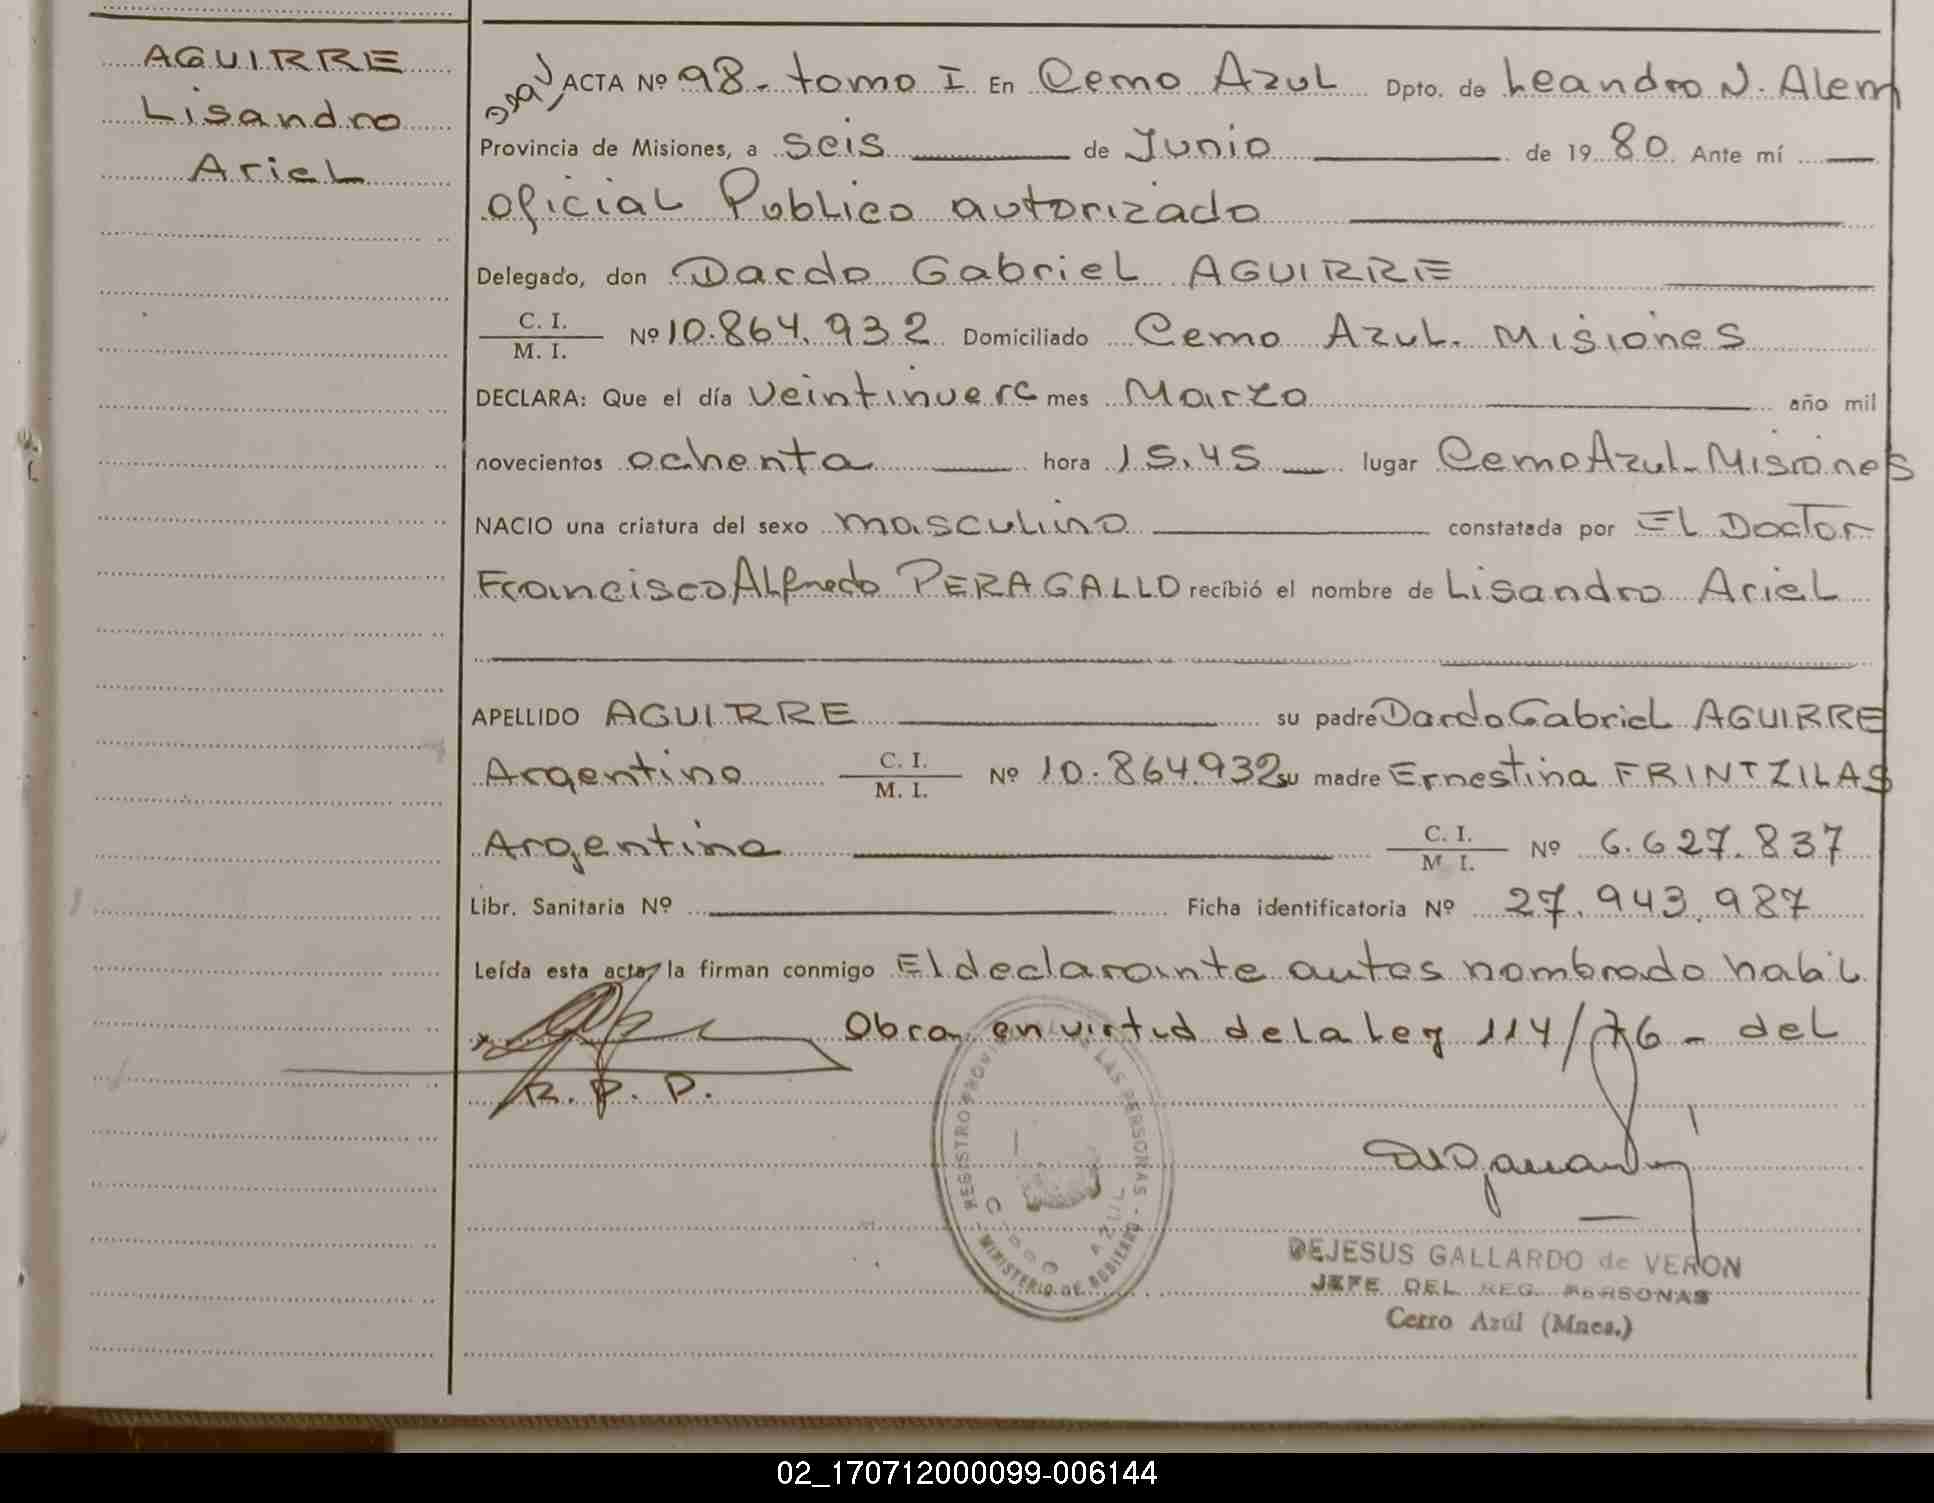 AGUIRRE
Lisandro
Ariel
ACTA Nº 98 - tomo I En Cerro Azul Dpto. de Leandro N. Alem
Provincia de Misiones, a seis de Junio de 1980. Ante mí
oficial Publico autorizado
Delegado, don Dardo Gabriel AGUIRRE
C. I.
M. I.
Nº 10.864.932 Domiciliado Cerro Azul. Misiones
DECLARA: Que el día veintinueve mes Marzo año mil
novecientos ochenta hora 15,45 lugar Cerro Azul - Misiones
NACIO una criatura del sexo masculino constatada por El Doctor
Francisco Alfredo PERAGALLO recibió el nombre de Lisandro Ariel
APELLIDO AGUIRRE su padre Dardo Gabriel AGUIRRE
Argentino C. I. M. I. Nº 10.864932 su madre Ernestina FRINTZILAS
Argentina C. I. M. I. Nº 6.627.837
Libr. Sanitaria Nº Ficha identificatoria Nº 27.943.987
Leída esta acta, la firman conmigo El declarante antes nombrado habil
Obra en virtud de la Ley 114/76 - del
R. P. P.
REGISTRO PROVINCIAL DE LAS PERSONAS - MINISTERIO DE GOBIERNO -
CERRO AZUL
DEJESUS GALLARDO de VERON
JEFE DEL REG. PERSONAS
Cerro Azúl (Mnes.)
02_170712000099-006144